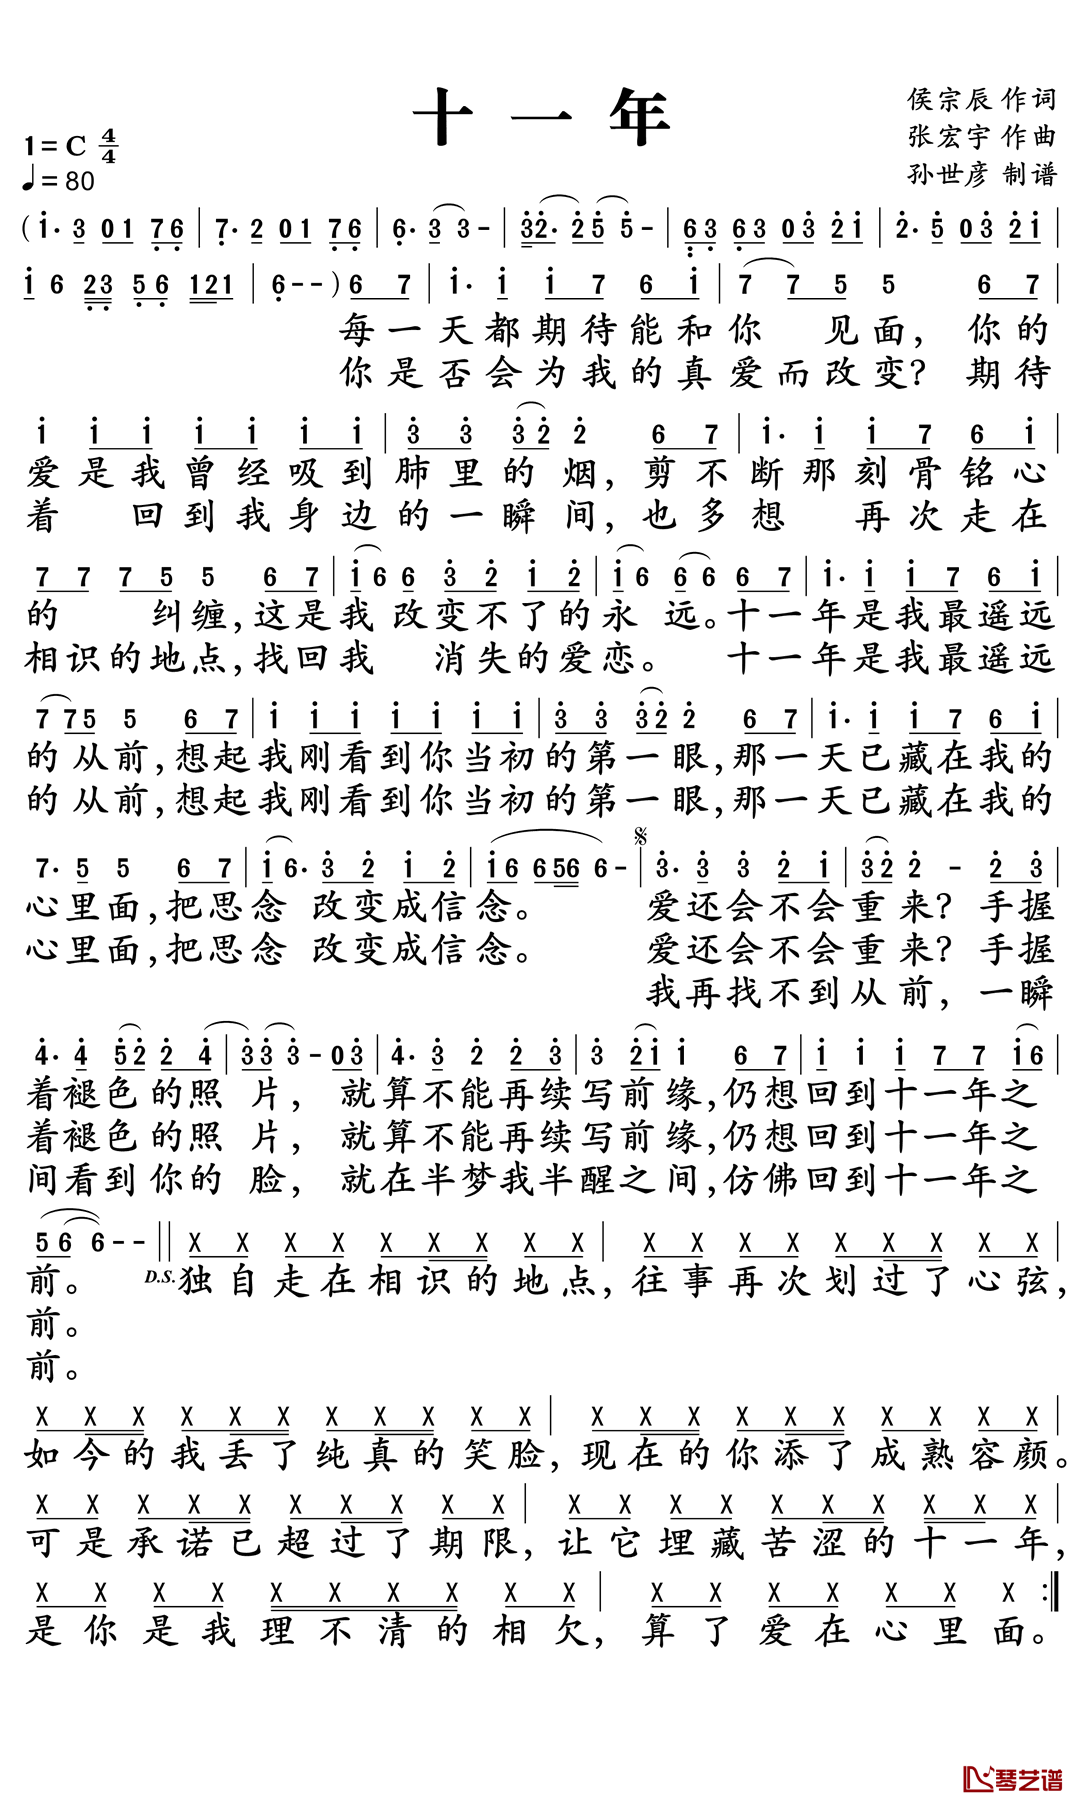 十一年
侯宗辰 作词
张宏宇 作曲
孙世彦 制谱
1=C 4/4
♩=80
(i· 3 01 76 | 7· 2 01 76 | 6· 3 3 - | 32· 25 5 - | 63 63 03 2i | 2· 5 03 2i |
i 6 23 56 121 | 6 - - ) 6 7 | i· i i 7 6 i | 7 7 5 5 6 7 |
每一天都期待能和你 见面, 你的
你是否会为我的真爱而改变? 期待
i i i i i i i | 3 3 32 2 6 7 | i· i i 7 6 i |
爱是我曾经吸到肺里的烟, 剪不断那刻骨铭心
着 回到我身边的一瞬间, 也多想 再次走在
7 7 7 5 5 6 7 | i6 6 3 2 i 2 | i6 66 6 7 | i· i i 7 6 i |
的 纠缠, 这是我 改变不了的永 远。十一年是我最遥远
相识的地点, 找回我 消失的爱恋。 十一年是我最遥远
7 75 5 6 7 | i i i i i i i | 3 3 32 2 6 7 | i· i i 7 6 i |
的从前, 想起我刚看到你当初的第一眼, 那一天已藏在我的
的从前, 想起我刚看到你当初的第一眼, 那一天已藏在我的
7· 5 5 6 7 | i6· 3 2 i 2 | i6 656 6 - | 3· 3 3 2 i | 32 2 - 2 3 |
心里面, 把思念 改变成信念。 爱还会不会重来? 手握
心里面, 把思念 改变成信念。 爱还会不会重来? 手握
我再找不到从前, 一瞬
4· 4 52 2 4 | 33 3 - 03 | 4· 3 2 2 3 | 3 2i i 6 7 | i i i 7 7 i6 |
着褪色的照 片, 就算不能再续写前缘, 仍想回到十一年之
着褪色的照 片, 就算不能再续写前缘, 仍想回到十一年之
间看到你的 脸, 就在半梦我半醒之间, 仿佛回到十一年之
56 6 - - || X X X X X X X X X | X X X X X X X X |
前。 D.S. 独自走在相识的地点, 往事再次划过了心弦,
前。
前。
X X X X X X X X X X X | X X X X X X X X X X |
如今的我丢了纯真的笑脸, 现在的你添了成熟容颜。
X X X X X X X X X X | X X X X X X X X X X |
可是承诺已超过了期限, 让它埋藏苦涩的十一年,
X X X X X X X X X X | X X X X X X X :||
是你是我理不清的相欠, 算了爱在心里面。
琴艺谱